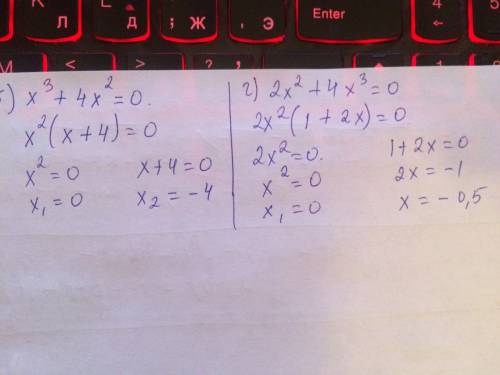 Enter
Л Д ; Ж , Э
< > ?
б) x³ + 4x² = 0.
x²(x + 4) = 0
x² = 0 x + 4 = 0
x₁ = 0 x₂ = -4
г) 2x² + 4x³ = 0
2x²(1 + 2x) = 0
2x² = 0. 1 + 2x = 0
x² = 0 2x = -1
x₁ = 0 x = -0,5